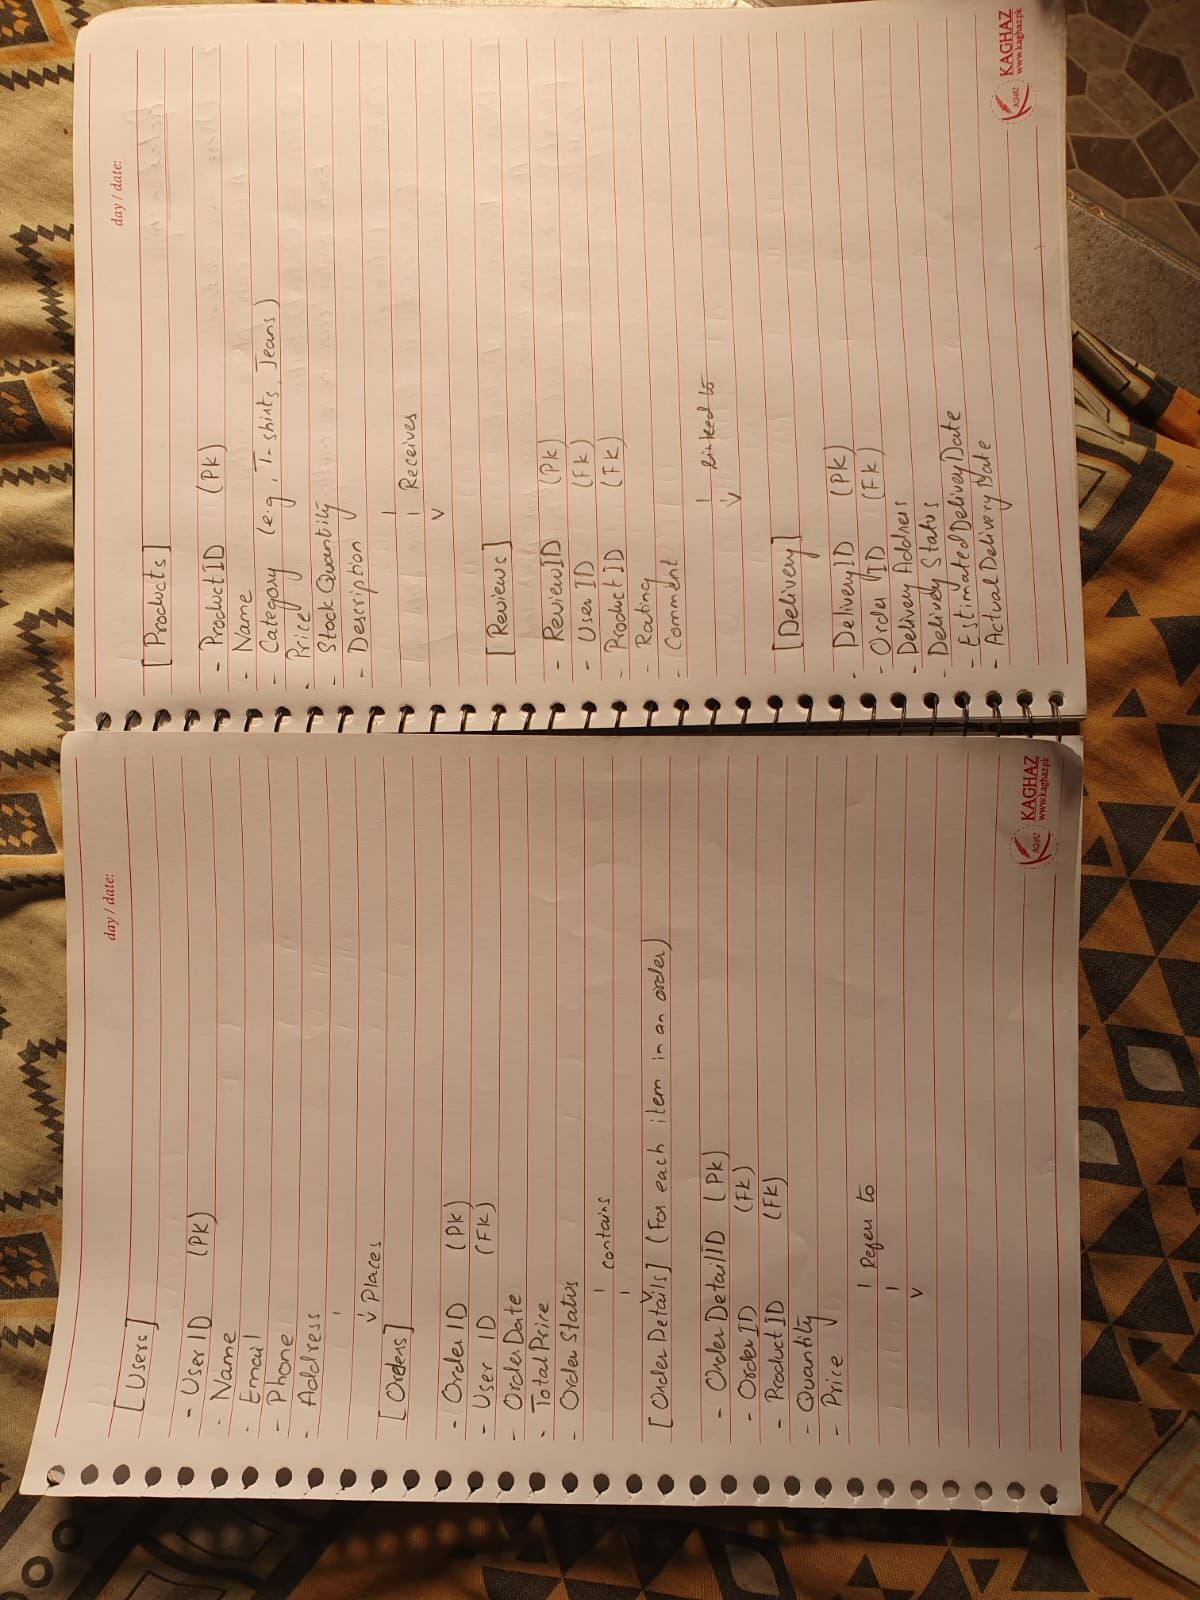 day / date:
[Users]
- User ID (PK)
- Name
- Email
- Phone
- Address
Places
[Orders]
- Order ID (PK)
- User ID (FK)
- Order Date
- Total Price
- Order Status
contains
[Order Details] (For each item in an order)
- Order Detail ID (PK)
- Order ID (FK)
- Product ID (FK)
- Quantity
- Price
Refers to
KAGHAZ
www.kaghaz.pk
day / date:
[Products]
- Product ID (PK)
- Name
- Category (e.g, T-shirts, Jeans)
- Price
- Stock Quantity
- Description
Receives
[Reviews]
- Review ID (PK)
- User ID (FK)
- Product ID (FK)
- Rating
- Comment
linked to
[Delivery]
- Delivery ID (PK)
- Order ID (FK)
- Delivery Address
- Delivery Status
- Estimated Delivery Date
- Actual Delivery Date
KAGHAZ
www.kaghaz.pk